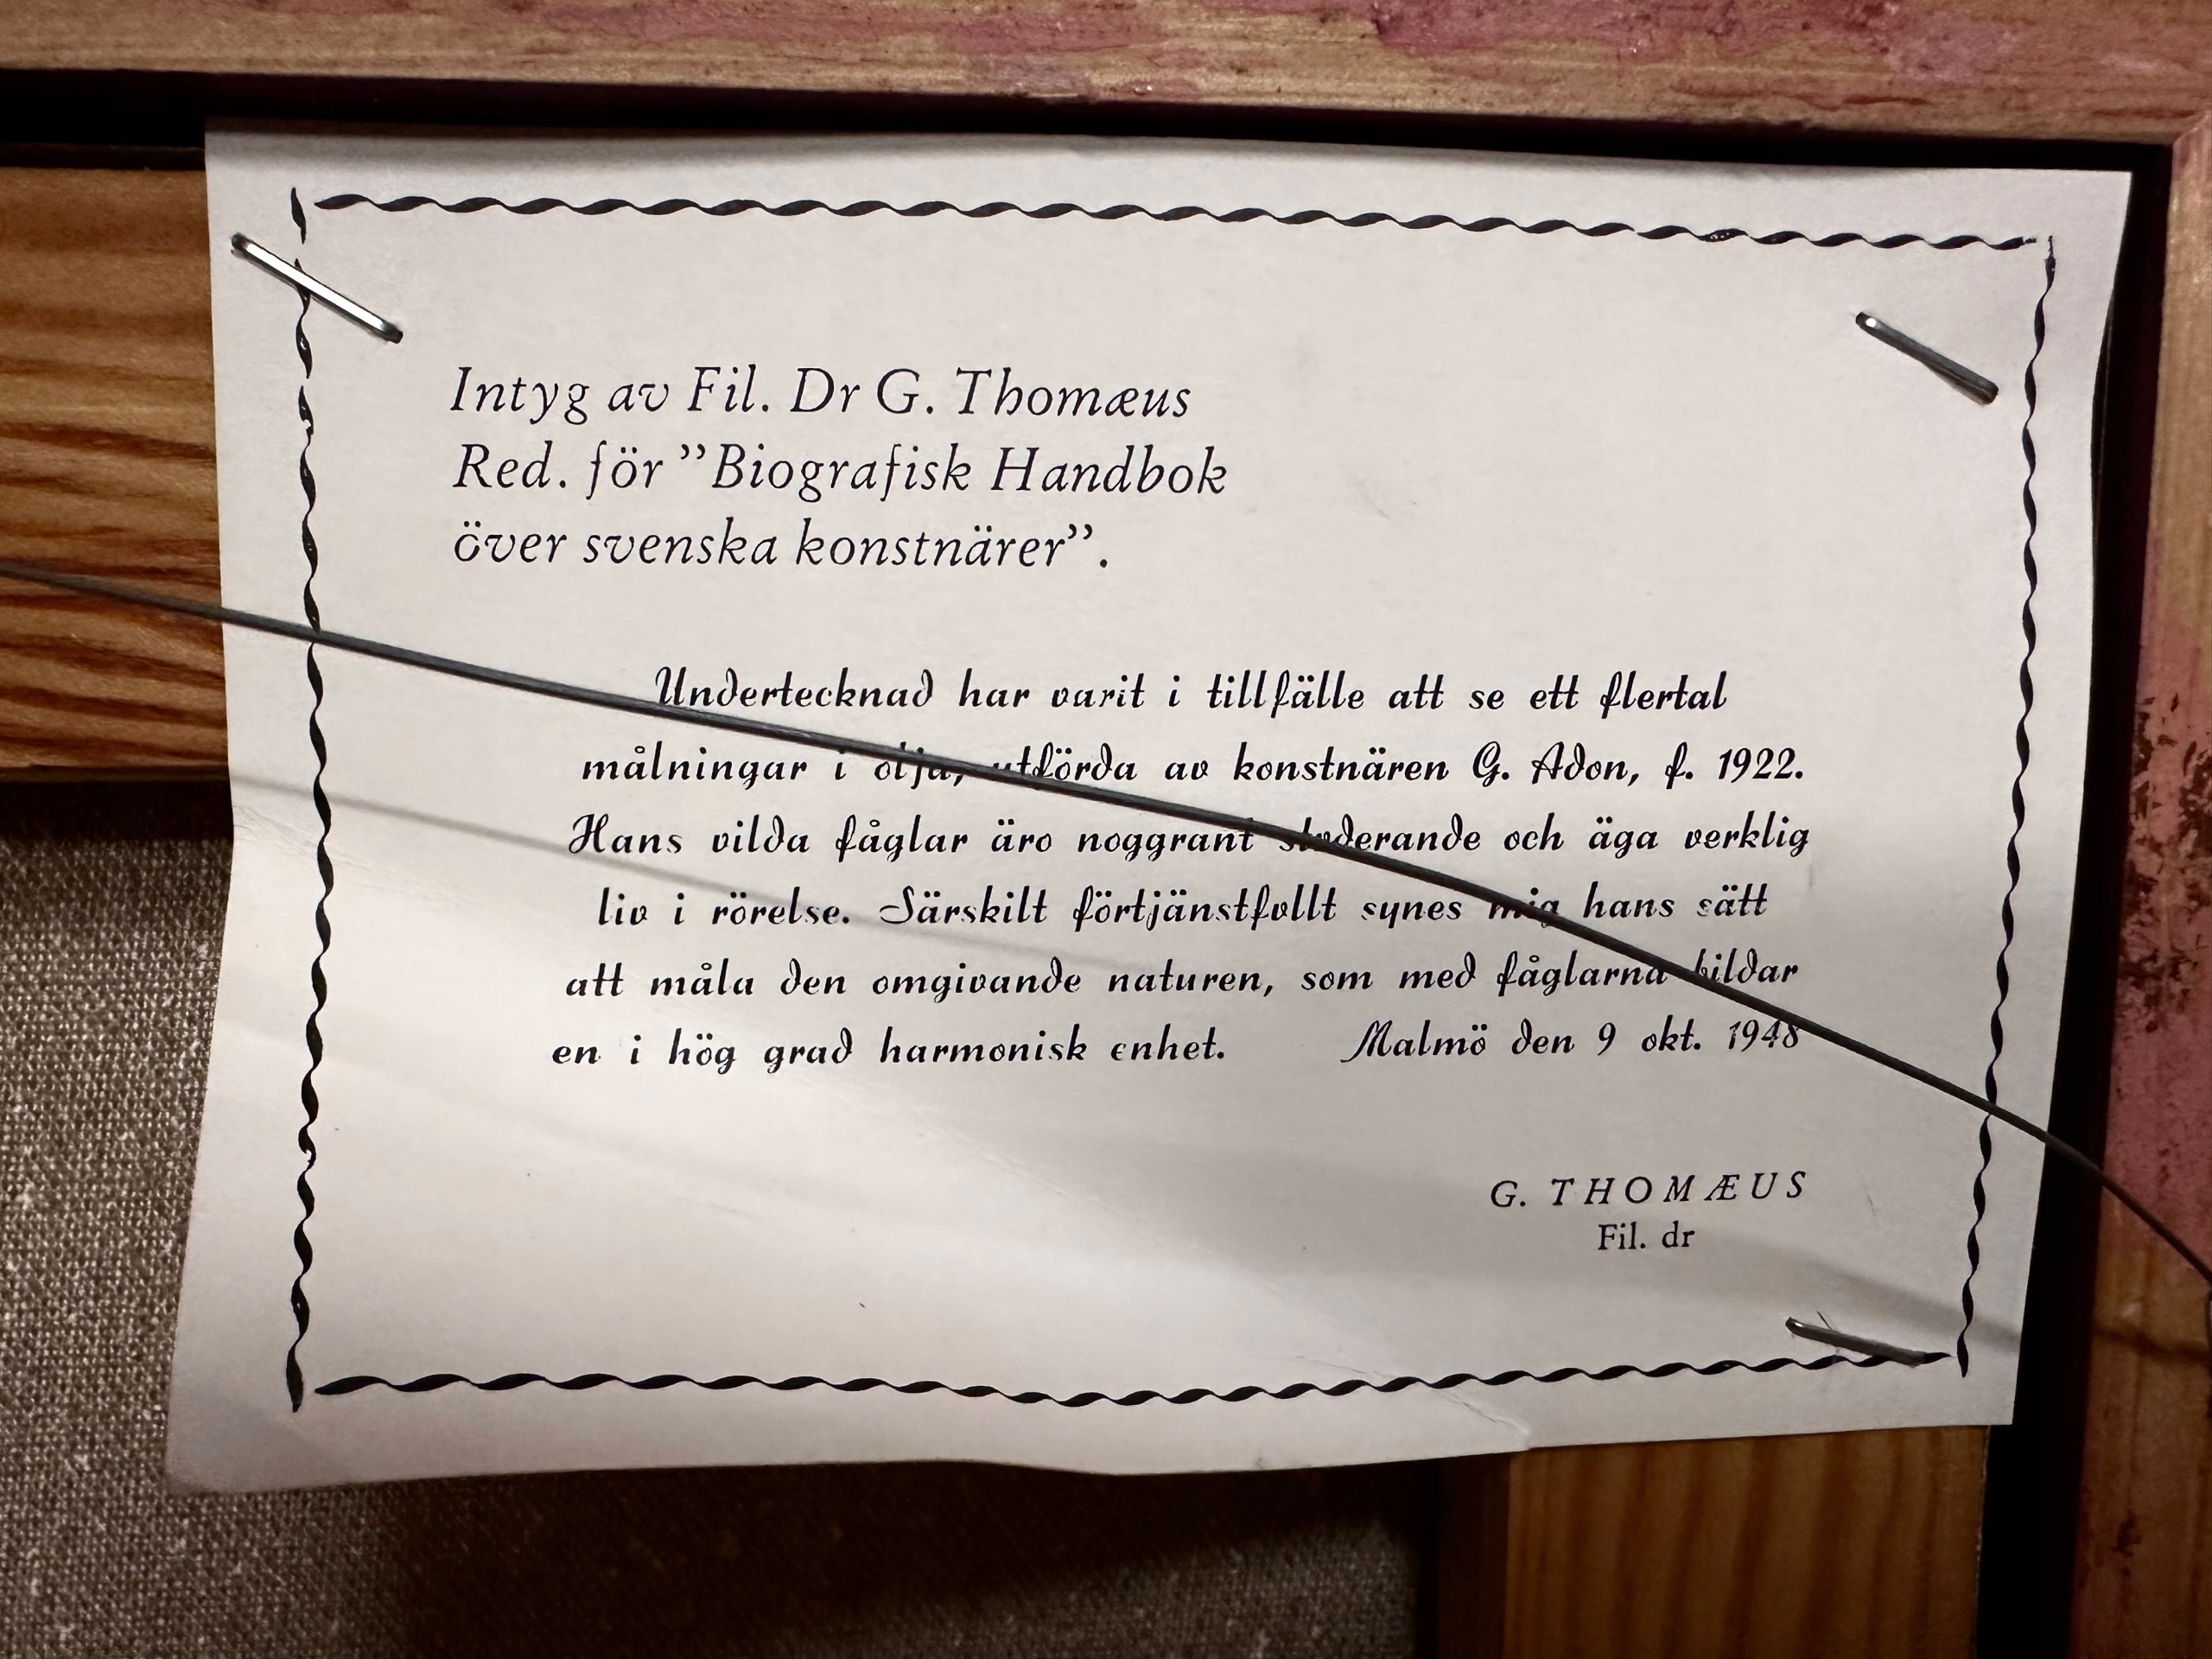 Intyg av Fil. Dr G. Thomæus
Red. för ”Biografisk Handbok
över svenska konstnärer”.
Undertecknad har varit i tillfälle att se ett flertal
målningar i olja, utförda av konstnären G. Adon, f. 1922.
Hans vilda fåglar äro noggrant studerande och äga verklig
liv i rörelse. Särskilt förtjänstfullt synes mig hans sätt
att måla den omgivande naturen, som med fåglarna bildar
en i hög grad harmonisk enhet. Malmö den 9 okt. 1948
G. THOMÆUS
Fil. dr